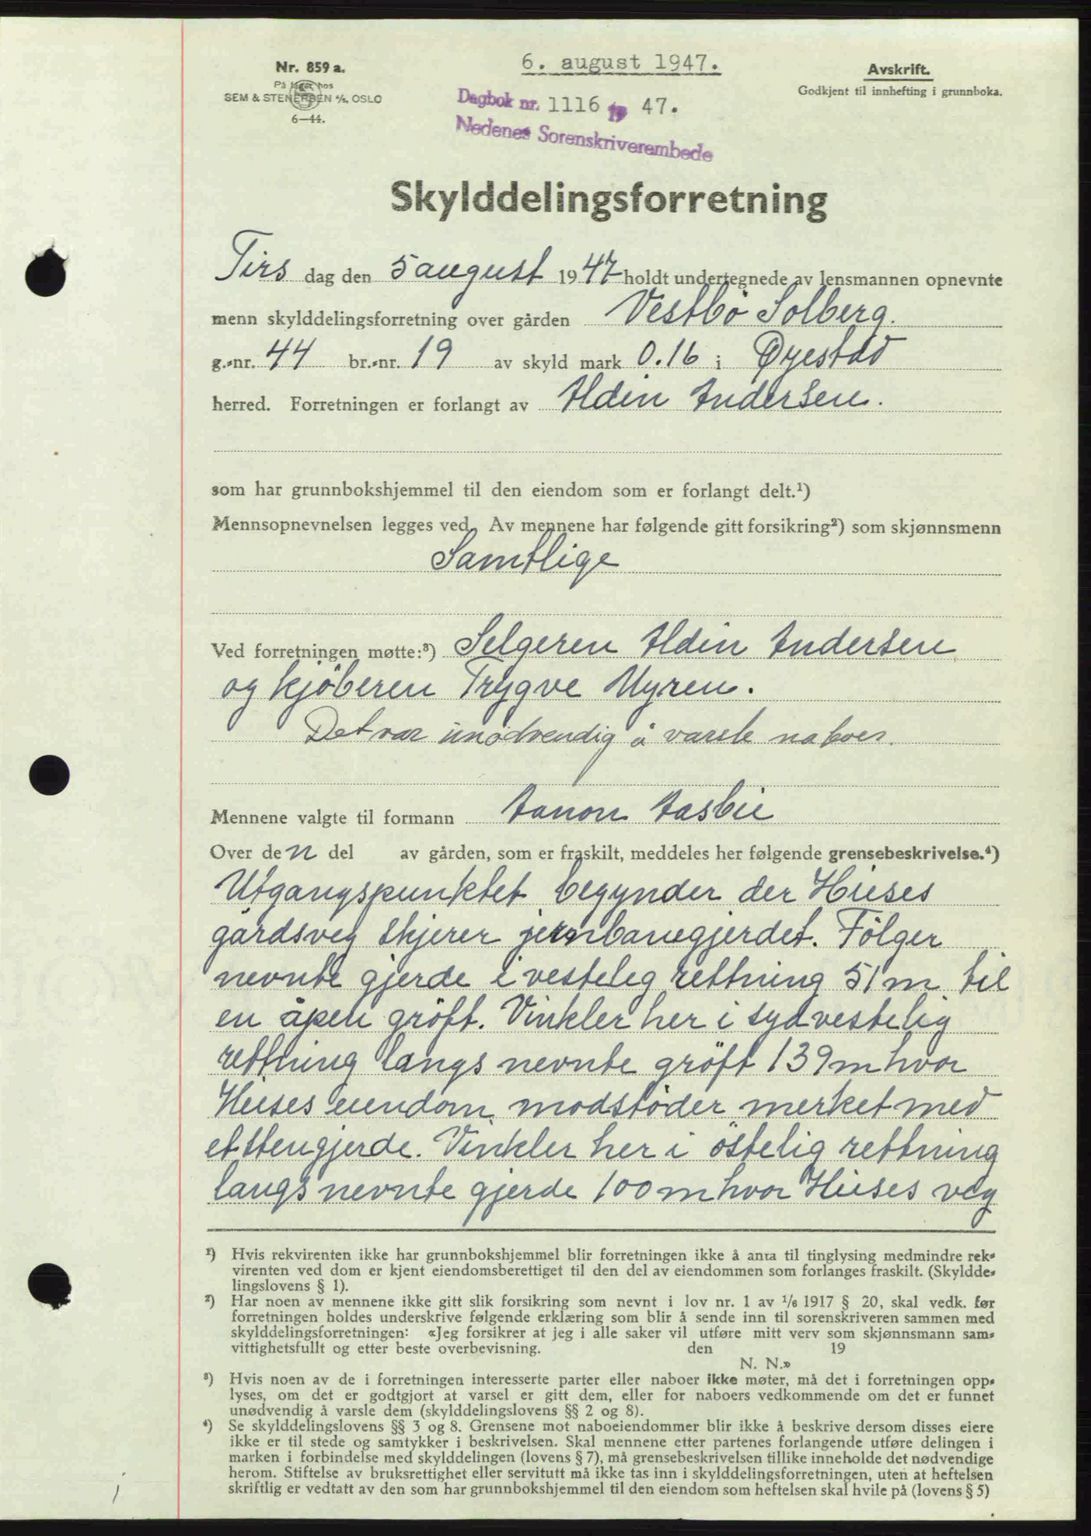 Nr. 859 a.
På lager hos
SEM & STENERSEN A/S, OSLO
6—44.
6. august 1947.
Dagbok nr. 1116 19 47.
Nedenes Sorenskriverembede
Avskrift.
Godkjent til innhefting i grunnboka.
Skylddelingsforretning
Tirs dag den 5 august 1947 holdt undertegnede av lensmannen opnevnte
menn skylddelingsforretning over gården Vestbö Solberg.
g.-nr. 44 br.-nr. 19 av skyld mark 0.16 i Øyestad
herred. Forretningen er forlangt av Aldin Andersen.
som har grunnbokshjemmel til den eiendom som er forlangt delt.¹)
Mennsopnevnelsen legges ved. Av mennene har følgende gitt forsikring²) som skjønnsmenn
Samtlige
Ved forretningen møtte:³) Selgeren Aldin Andersen
og kjöberen Trygve Myren.
Det var unødvendig å varsle naboer.
Mennene valgte til formann Aanon Aasbie
Over den del av gården, som er fraskilt, meddeles her følgende grensebeskrivelse.⁴)
Utgangspunktet begynder der Huses
gårdsveg skjerer jernbanegjerdet. Fölger
nevnte gjerde i vesteleg rettning 51 m til
en åpen gröft. Vinkler her i sydvestelig
rettning langs nevnte gröft 139 m hvor
Huses eiendom modstöder merket med
et stengjerde. Vinkler her i östelig rettning
langs nevnte gjerde 100 m hvor Huses veg
¹) Hvis rekvirenten ikke har grunnbokshjemmel blir forretningen ikke å anta til tinglysing medmindre rek-
virenten ved dom er kjent eiendomsberettiget til den del av eiendommen som forlanges fraskilt. (Skyldde-
lingslovens § 1).
²) Har noen av mennene ikke gitt slik forsikring som nevnt i lov nr. 1 av 1/6 1917 § 20, skal vedk. før
forretningen holdes underskrive følgende erklæring som blir å sende inn til sorenskriveren sammen med
skylddelingsforretningen: «Jeg forsikrer at jeg i alle saker vil utføre mitt verv som skjønnsmann sam-
vittighetsfullt og etter beste overbevisning. den 19
N. N.»
³) Hvis noen av de i forretningen interesserte parter eller naboer ikke møter, må det i forretningen opp-
lyses, om det er godtgjort at varsel er gitt dem, eller for naboers vedkommende om det er funnet
unødvendig å varsle dem (skylddelingslovens §§ 2 og 8).
⁴) Se skylddelingslovens §§ 3 og 8. Grensene mot naboeiendommer blir ikke å beskrive dersom disses eiere
ikke er til stede og samtykker i beskrivelsen. Skal mennene etter partenes forlangende utføre delingen i
marken i forbindelse med skylddelingen (lovens § 7), må grensebeskrivelsen tillike inneholde det nødvendige
herom. Stiftelse av bruksrettighet eller servitutt må ikke tas inn i skylddelingsforretningen, uten at heftelsen
skriftlig er vedtatt av den som har grunnbokshjemmel til den eiendom som heftelsen skal hvile på (lovens § 5)